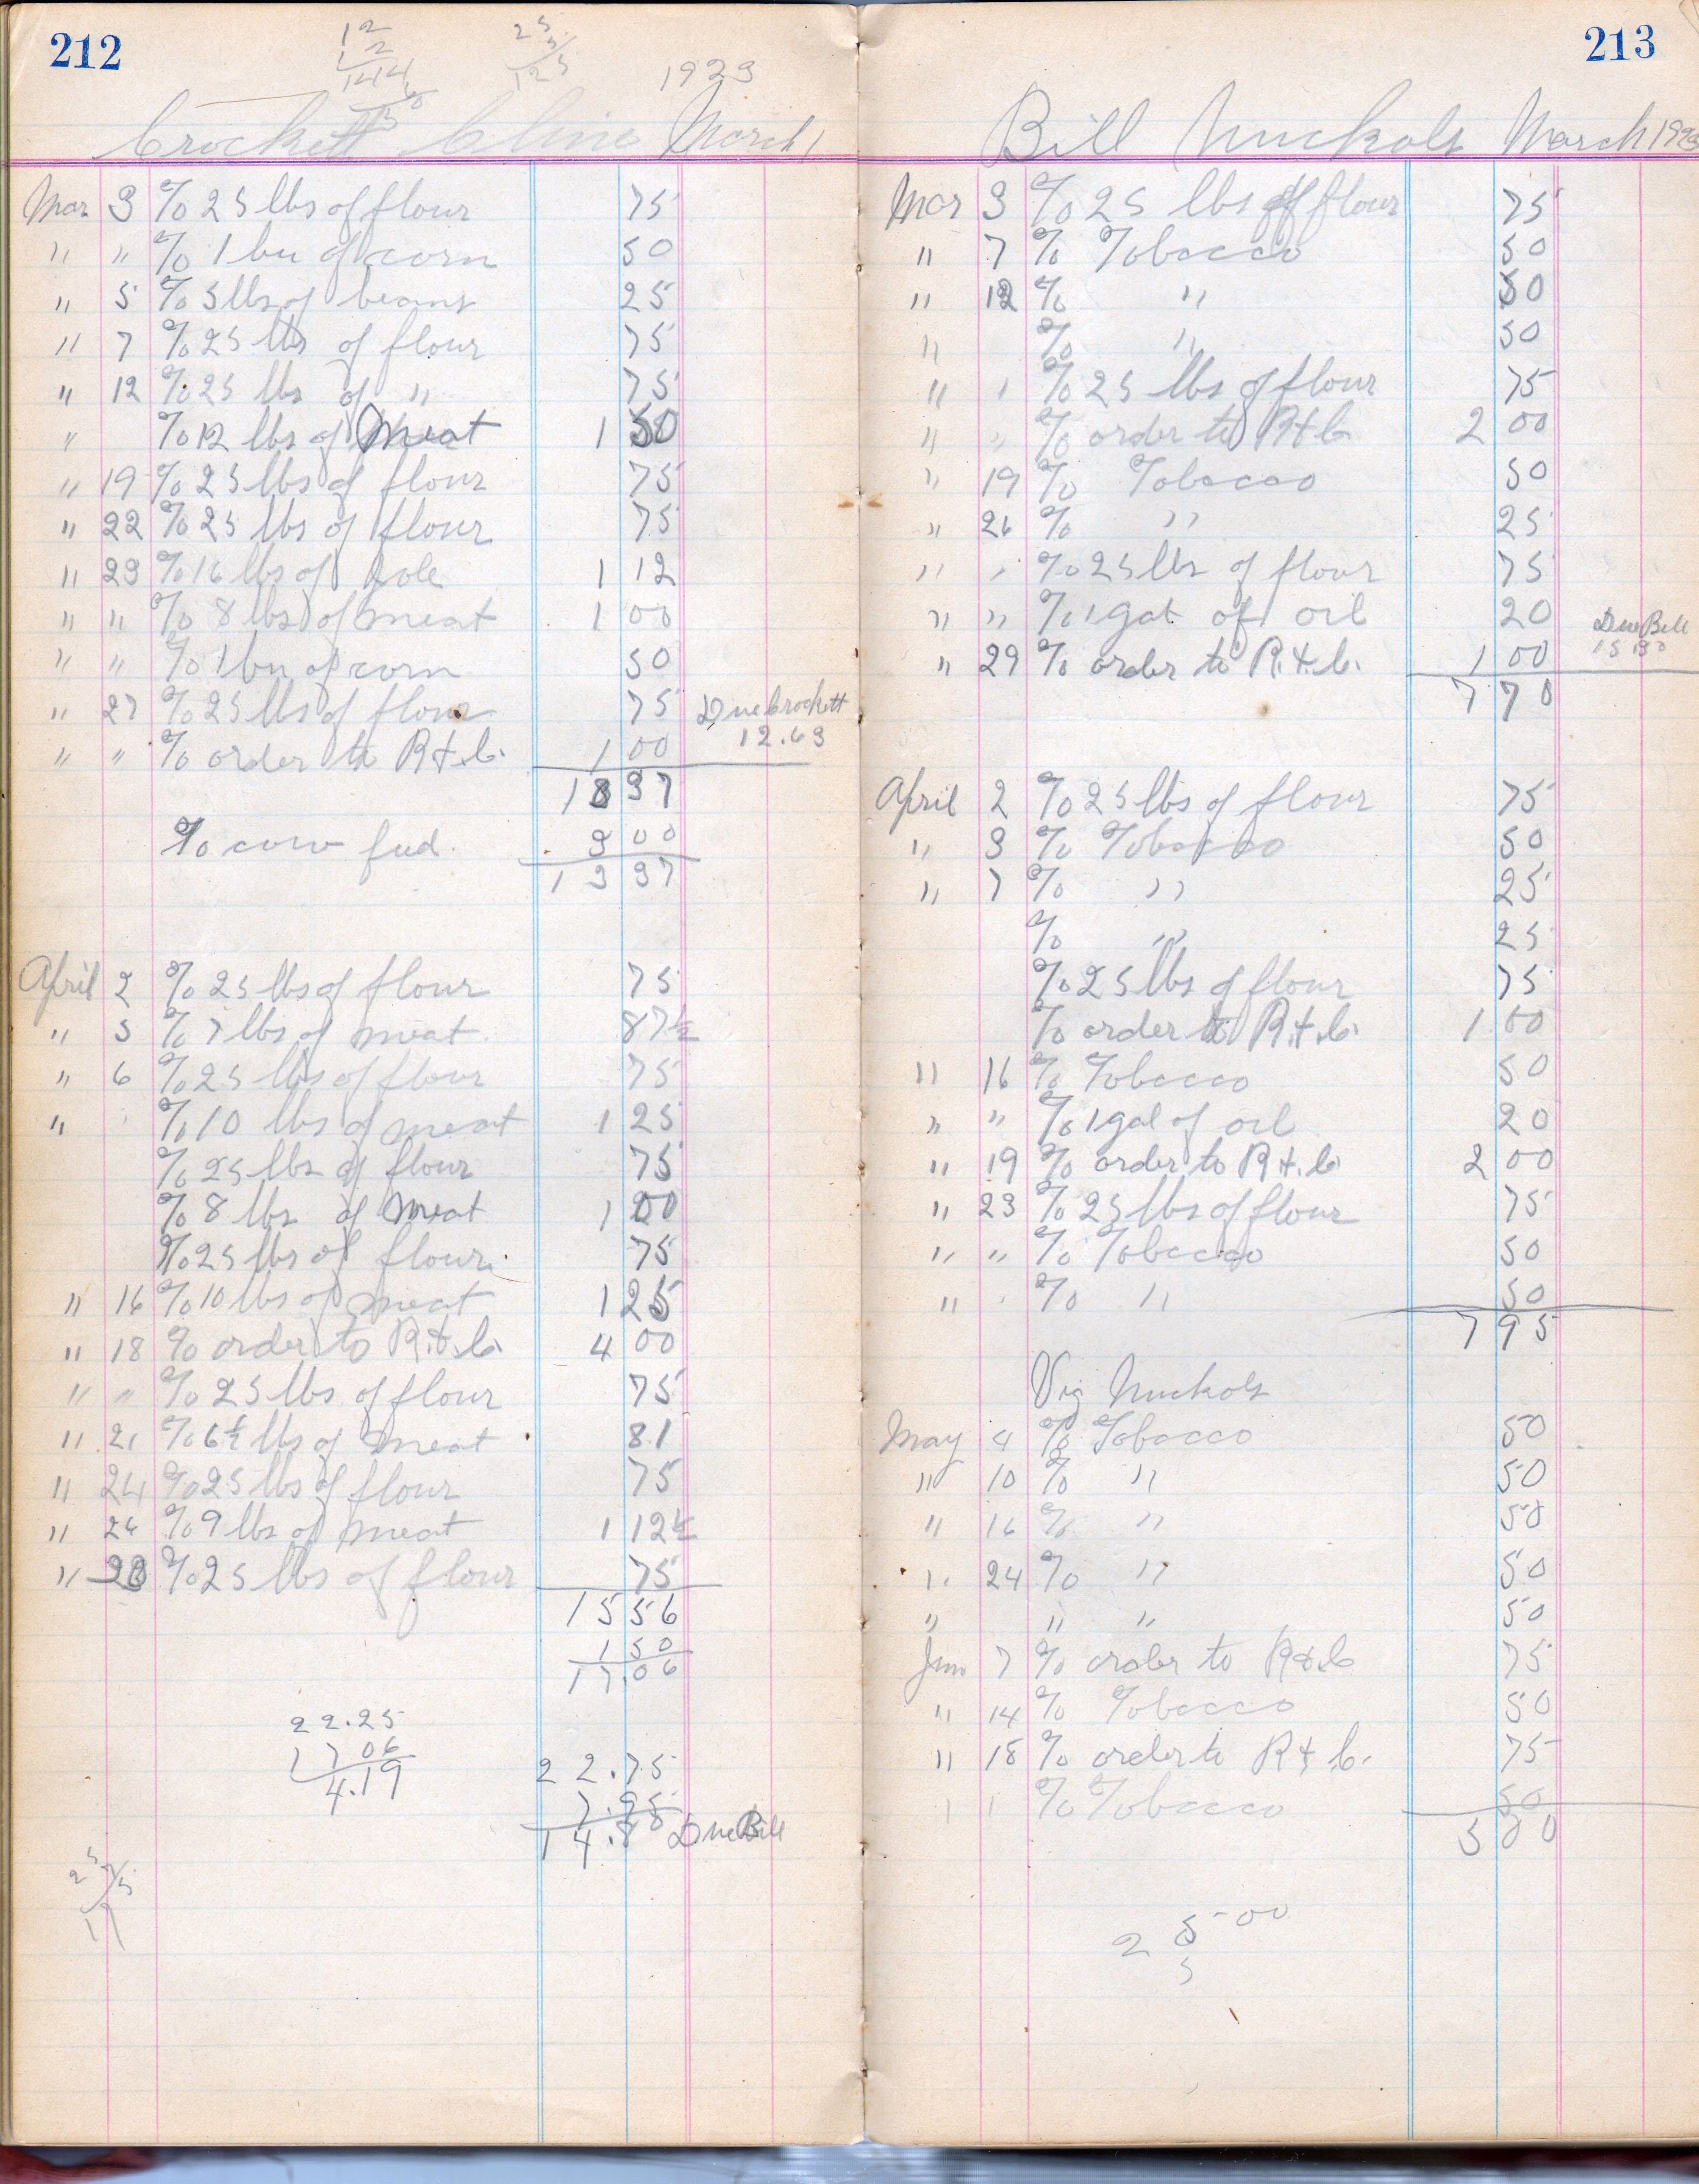 212
12
2
144
6
150
25
5
125
1923
Crockett Cline March 1
Mar 3 % 25 lbs of flour 75
" " % 1 bu of corn 50
" 5 % 5 lbs of beans 25
" 7 % 25 lbs of flour 75
" 12 % 25 lbs of " 75
" % 12 lbs of Meat 1 50
" 19 % 25 lbs of flour 75
" 22 % 25 lbs of flour 75
" 23 % 16 lbs of 1 12
" " % 8 lbs of meat 1 00
" " % 1 bu of corn 50
" 27 % 25 lbs of flour 75 Due Crockett
12.63
" " % order to R & C. 1 00
1 3 37
% cow fud. 3 00
1 3 37
April 2 % 25 lbs of flour 75
" 5 % 7 lbs of meat 87½
" 6 % 25 lbs of flour 75
" % 10 lbs of meat 1 25
% 25 lbs of flour 75
% 8 lbs of Meat 1 00
% 25 lbs of flour. 75
" 16 % 10 lbs of meat 1 25
" 18 % order to R. & C. 4 00
" " % 25 lbs of flour 75
" 21 % 6½ lbs of meat 81
" 24 % 25 lbs of flour 75
" 26 % 9 lbs of meat 1 12½
" 28 % 25 lbs of flour 75
15 56
1 50
17.06
22.25
17 06
4.19
22.75
7.95
14.8 Due Bill
25
5
213
Bill Nuckols March 1923
Mar 3 % 25 lbs of flour 75
" 7 % Tobacco 50
" 12 % " 50
" % " 50
" " % 25 lbs of flour 75
" " % order to R & C 2 00
" 19 % Tobacco 50
" 26 % " 25
" " % 25 lbs of flour 75
" " % 1 gal of oil 20 Due Bill
" 29 % order to R. & C. 1 00
7 70
April 2 % 25 lbs of flour 75
" 3 % Tobacco 50
" 7 % " 25
% " 25
% 25 lbs of flour 75
% order to R. & C. 1 00
" 16 % Tobacco 50
" " % 1 gal of oil 20
" 19 % order to R & C. 2 00
" 23 % 25 lbs of flour 75
" " % Tobacco 50
" % " 50
7 95
Vig Nuckols
May 4 % Tobacco 50
" 10 % " 50
" 16 % " 50
" 24 % " 50
" " " 50
Jun 7 % order to R & C 75
" 14 % Tobacco 50
" 18 % order to R & C. 75
" " % Tobacco 50
5 00
2 5 00
5